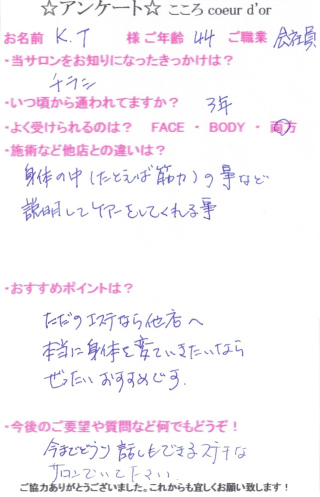 ☆アンケート☆ こころ coeur d'or
お名前 K.T 様 ご年齢 44 ご職業 会社員
・当サロンをお知りになったきっかけは？
チラシ
・いつ頃から通われてますか？ 3年
・よく受けられるのは？ FACE ・ BODY ・ 両方
・施術など他店との違いは？
身体の中(たとえば筋力)の事など
説明してケアーをしてくれる事
・おすすめポイントは？
ただのエステなら他店へ
本当に身体を変ていきたいなら
ぜったいおすすめです.
・今後のご要望や質問など何でもどうぞ！
今までどうり 話しもできるステキな
サロンでいて下さい.
ご協力ありがとうございました。これからも宜しくお願い致します！